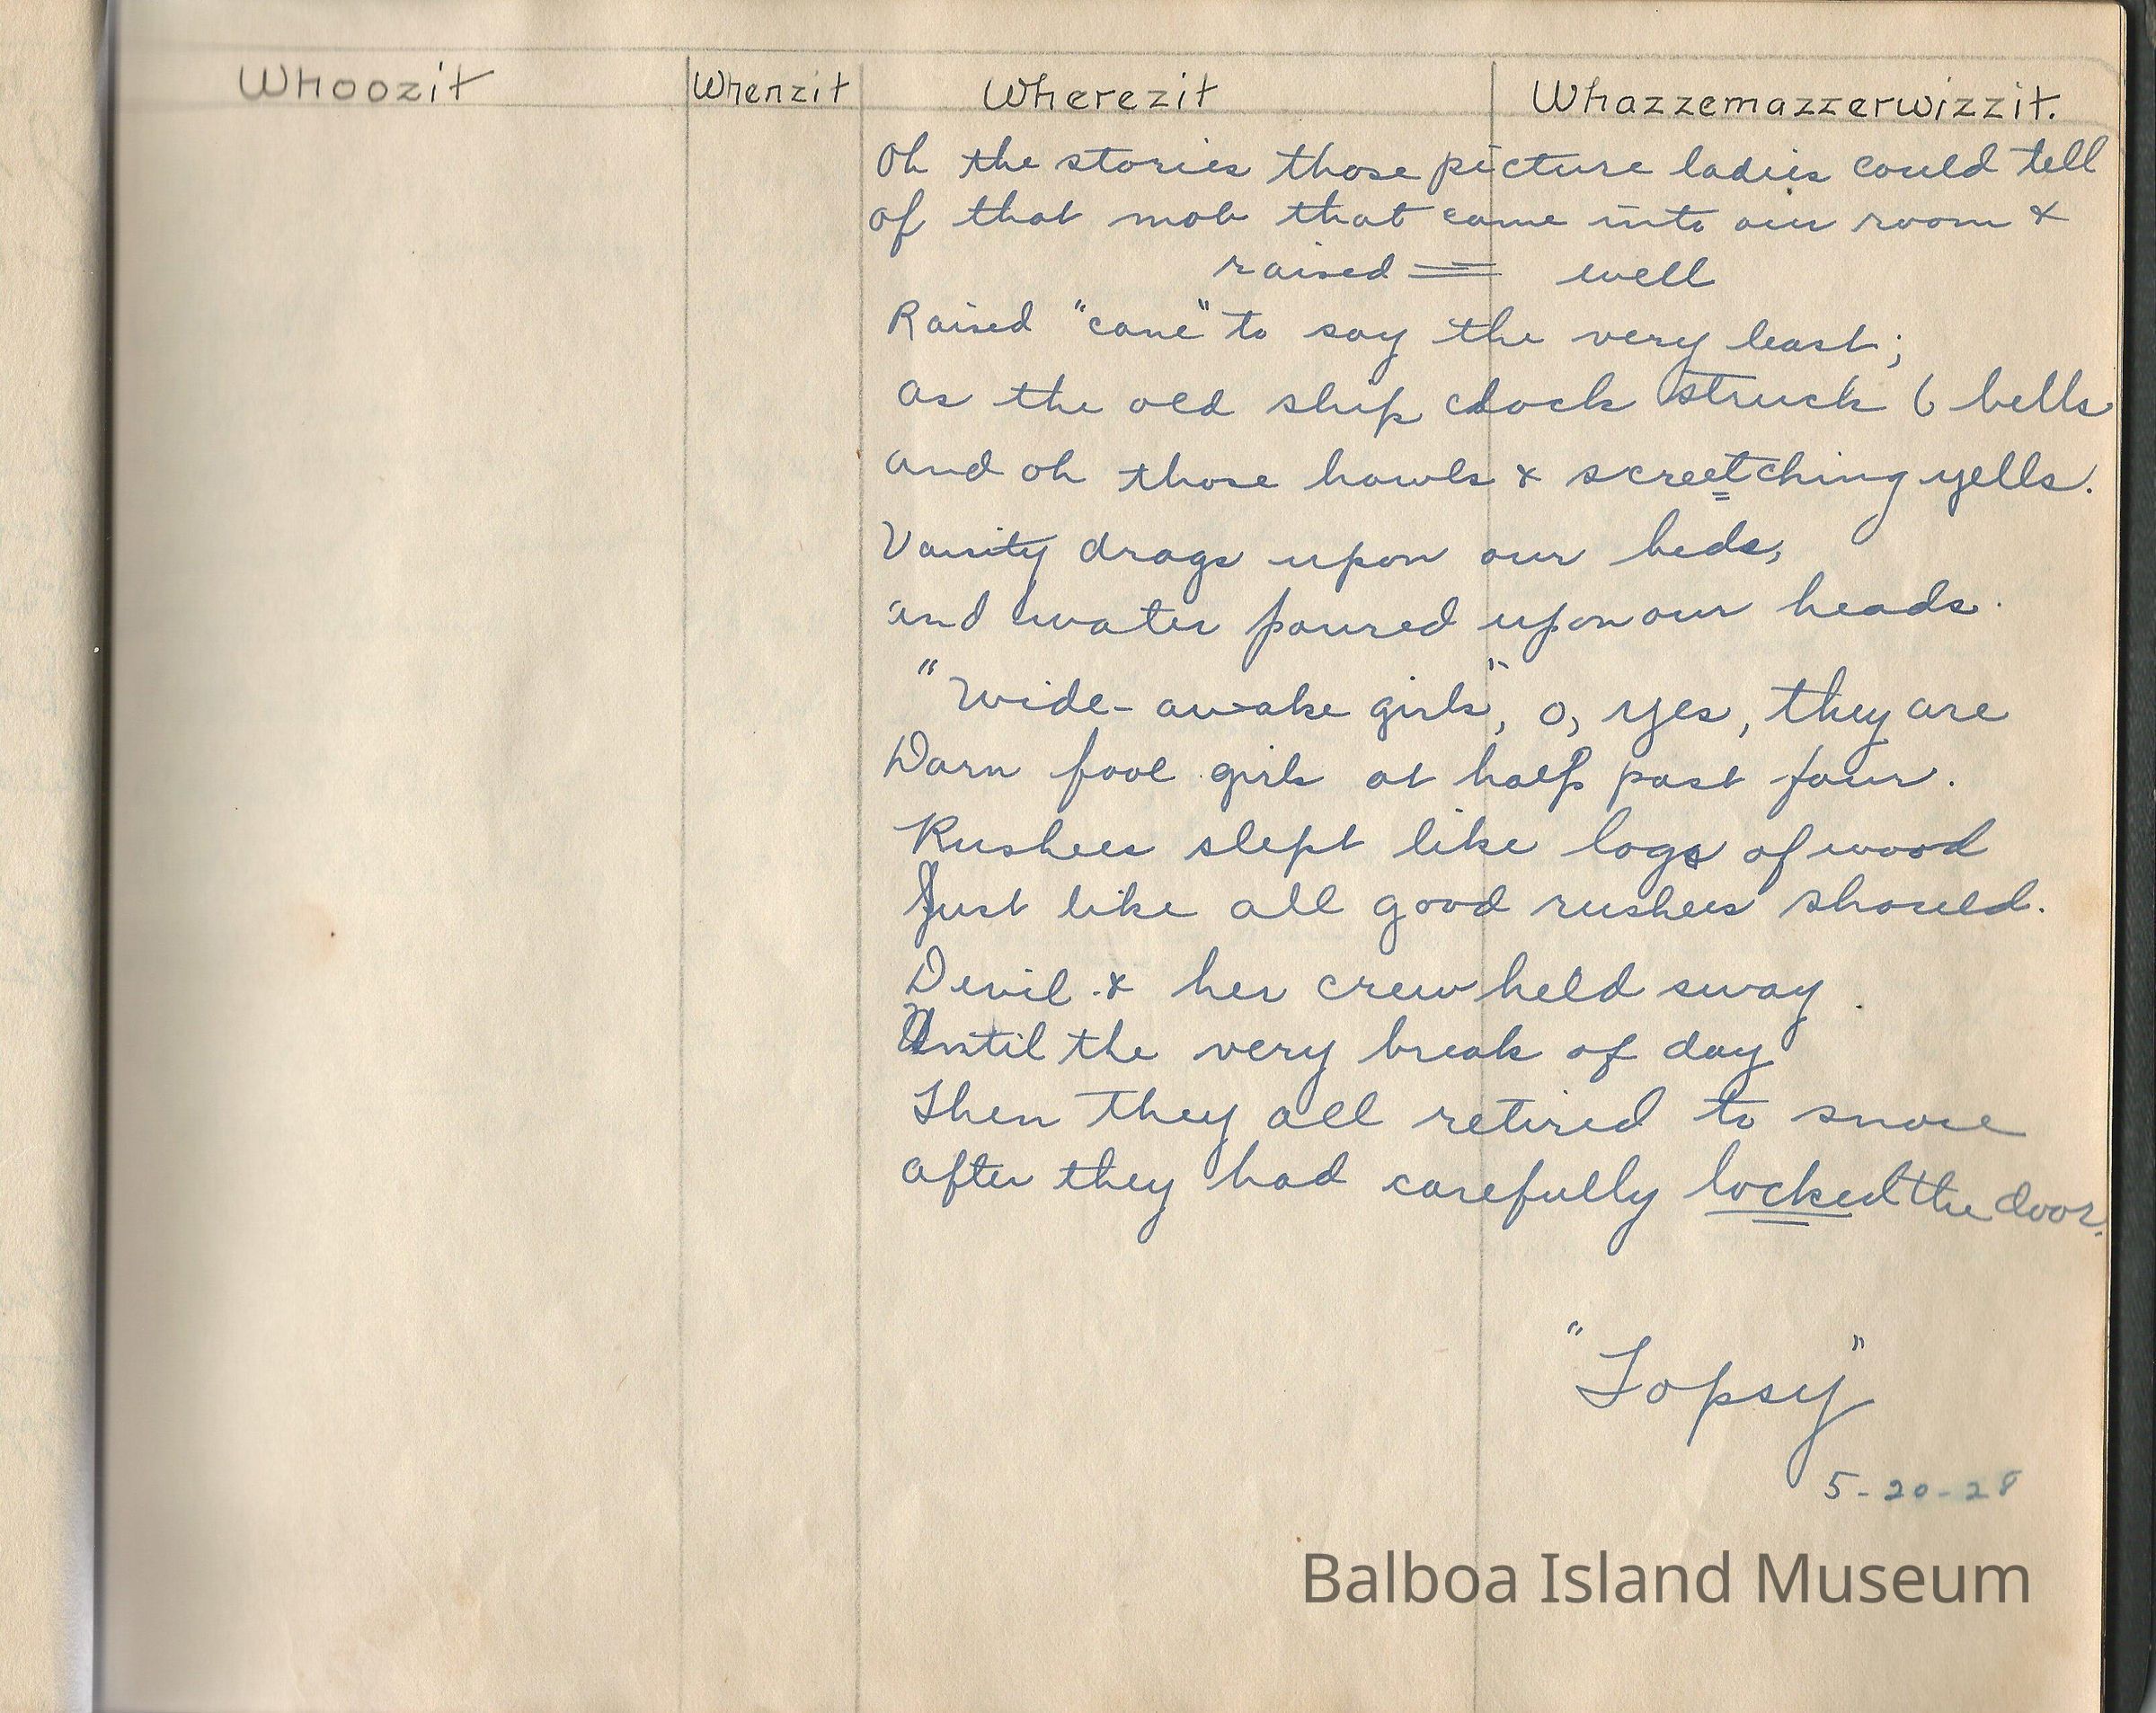 Whoozit Whenzit Wherezit Whazzemazzerwizzit.
Oh the stories those picture ladies could tell
of that mob that came into our room &
raised = well
Raised "cane" to say the very least;
as the old ship clock struck 6 bells
and oh those howls & screetching yells.
Varsity drags upon our beds,
and water poured upon our heads.
"Wide-awake girls", o, yes, they are
Darn fool girls at half past four.
Rushees slept like logs of wood
Just like all good rushees should.
Devil & her crew held sway.
Until the very break of day
Then they all retired to snore
after they had carefully locked the door.
"Topsy"
5-20-28
Balboa Island Museum